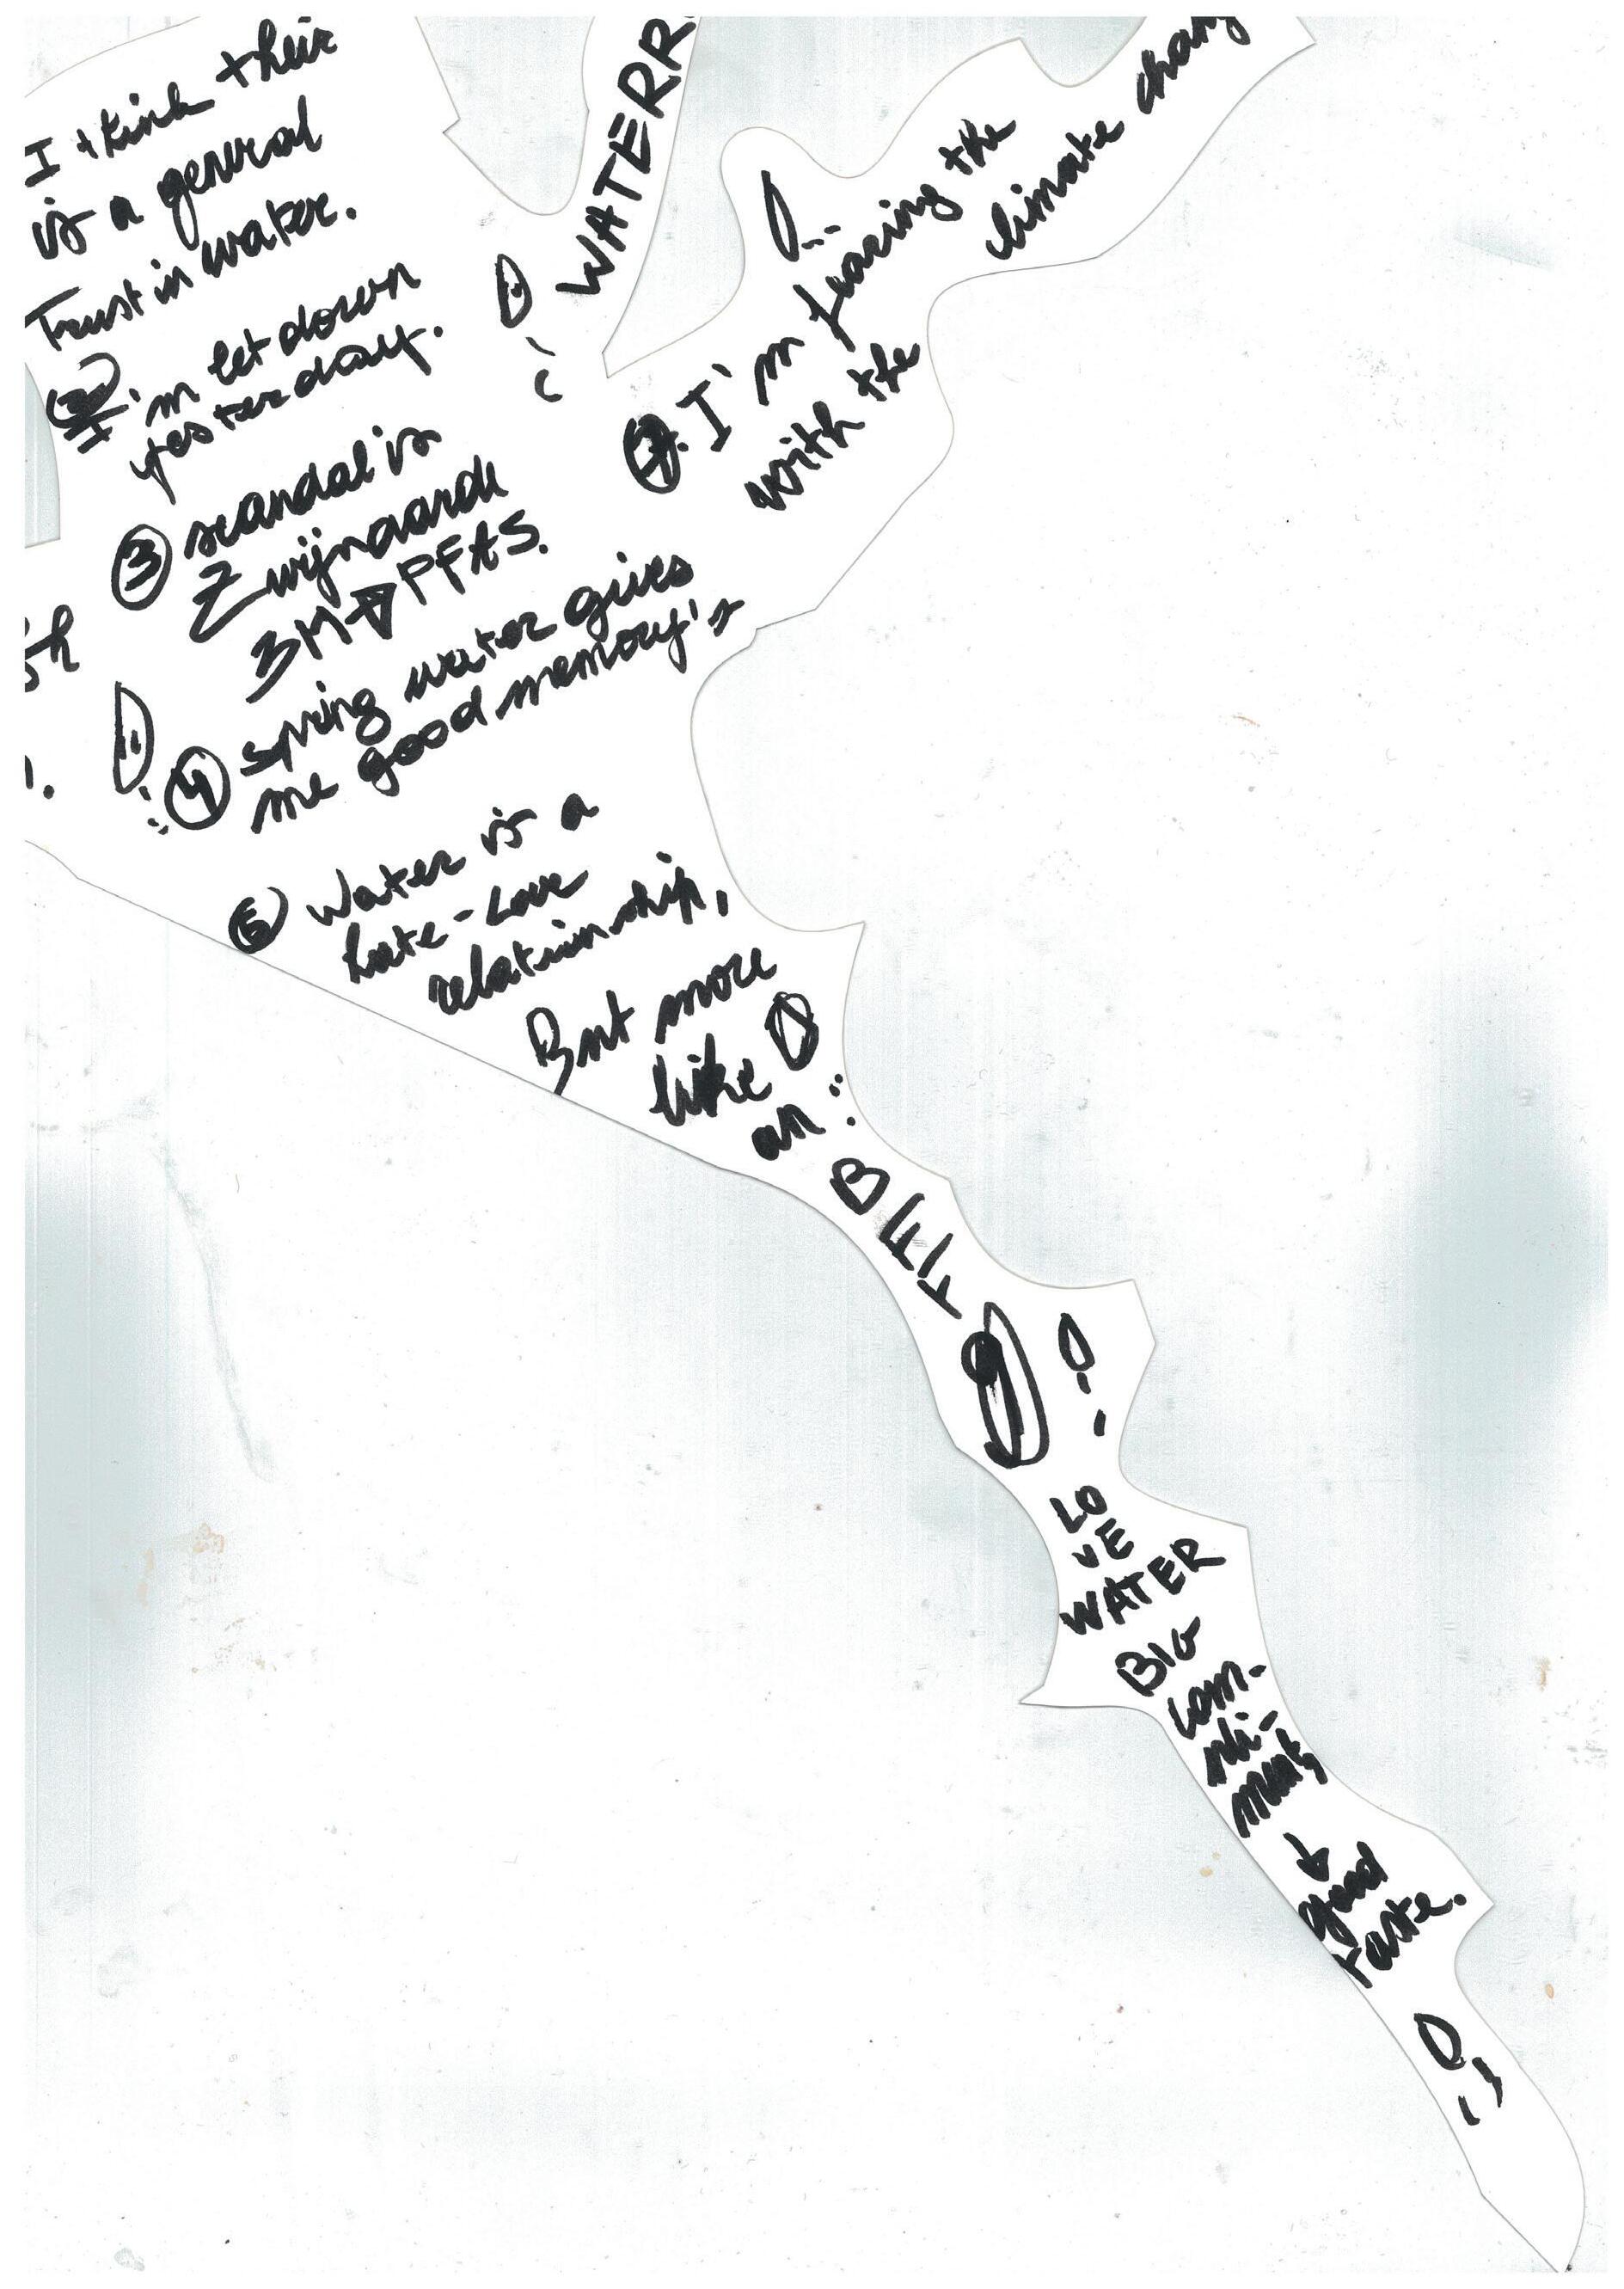 I think their
is a general
Trust in water.
I'm let down
yesterday.
③ scandal is
Zwijnaarde
3M → PFAS.
④ spring water gives
me good memory's
⑤ Water is a
hate-love
relationship,
But more
like
an
BEET
LO
VE
WATER
BIG
com-
pli-
ment,
↓
good
taste.
WATERR
I'm fearing the
with the
climate chang